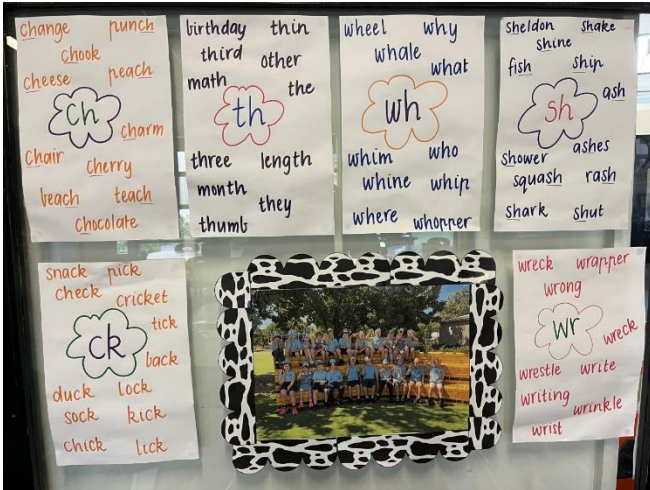 change punch
chook
cheese peach
ch
charm
chair cherry
beach teach
chocolate
birthday thin
third other
math the
th
three length
month
they
thumb
wheel why
whale
what
wh
whim who
whine whip
where whopper
sheldon shake
shine
fish ship
ash
sh
shower ashes
squash rash
shark shut
snack pick
check cricket
tick
ck
back
duck lock
sock kick
chick lick
wreck wrapper
wrong
wr
wreck
wrestle write
writing
wrinkle
wrist